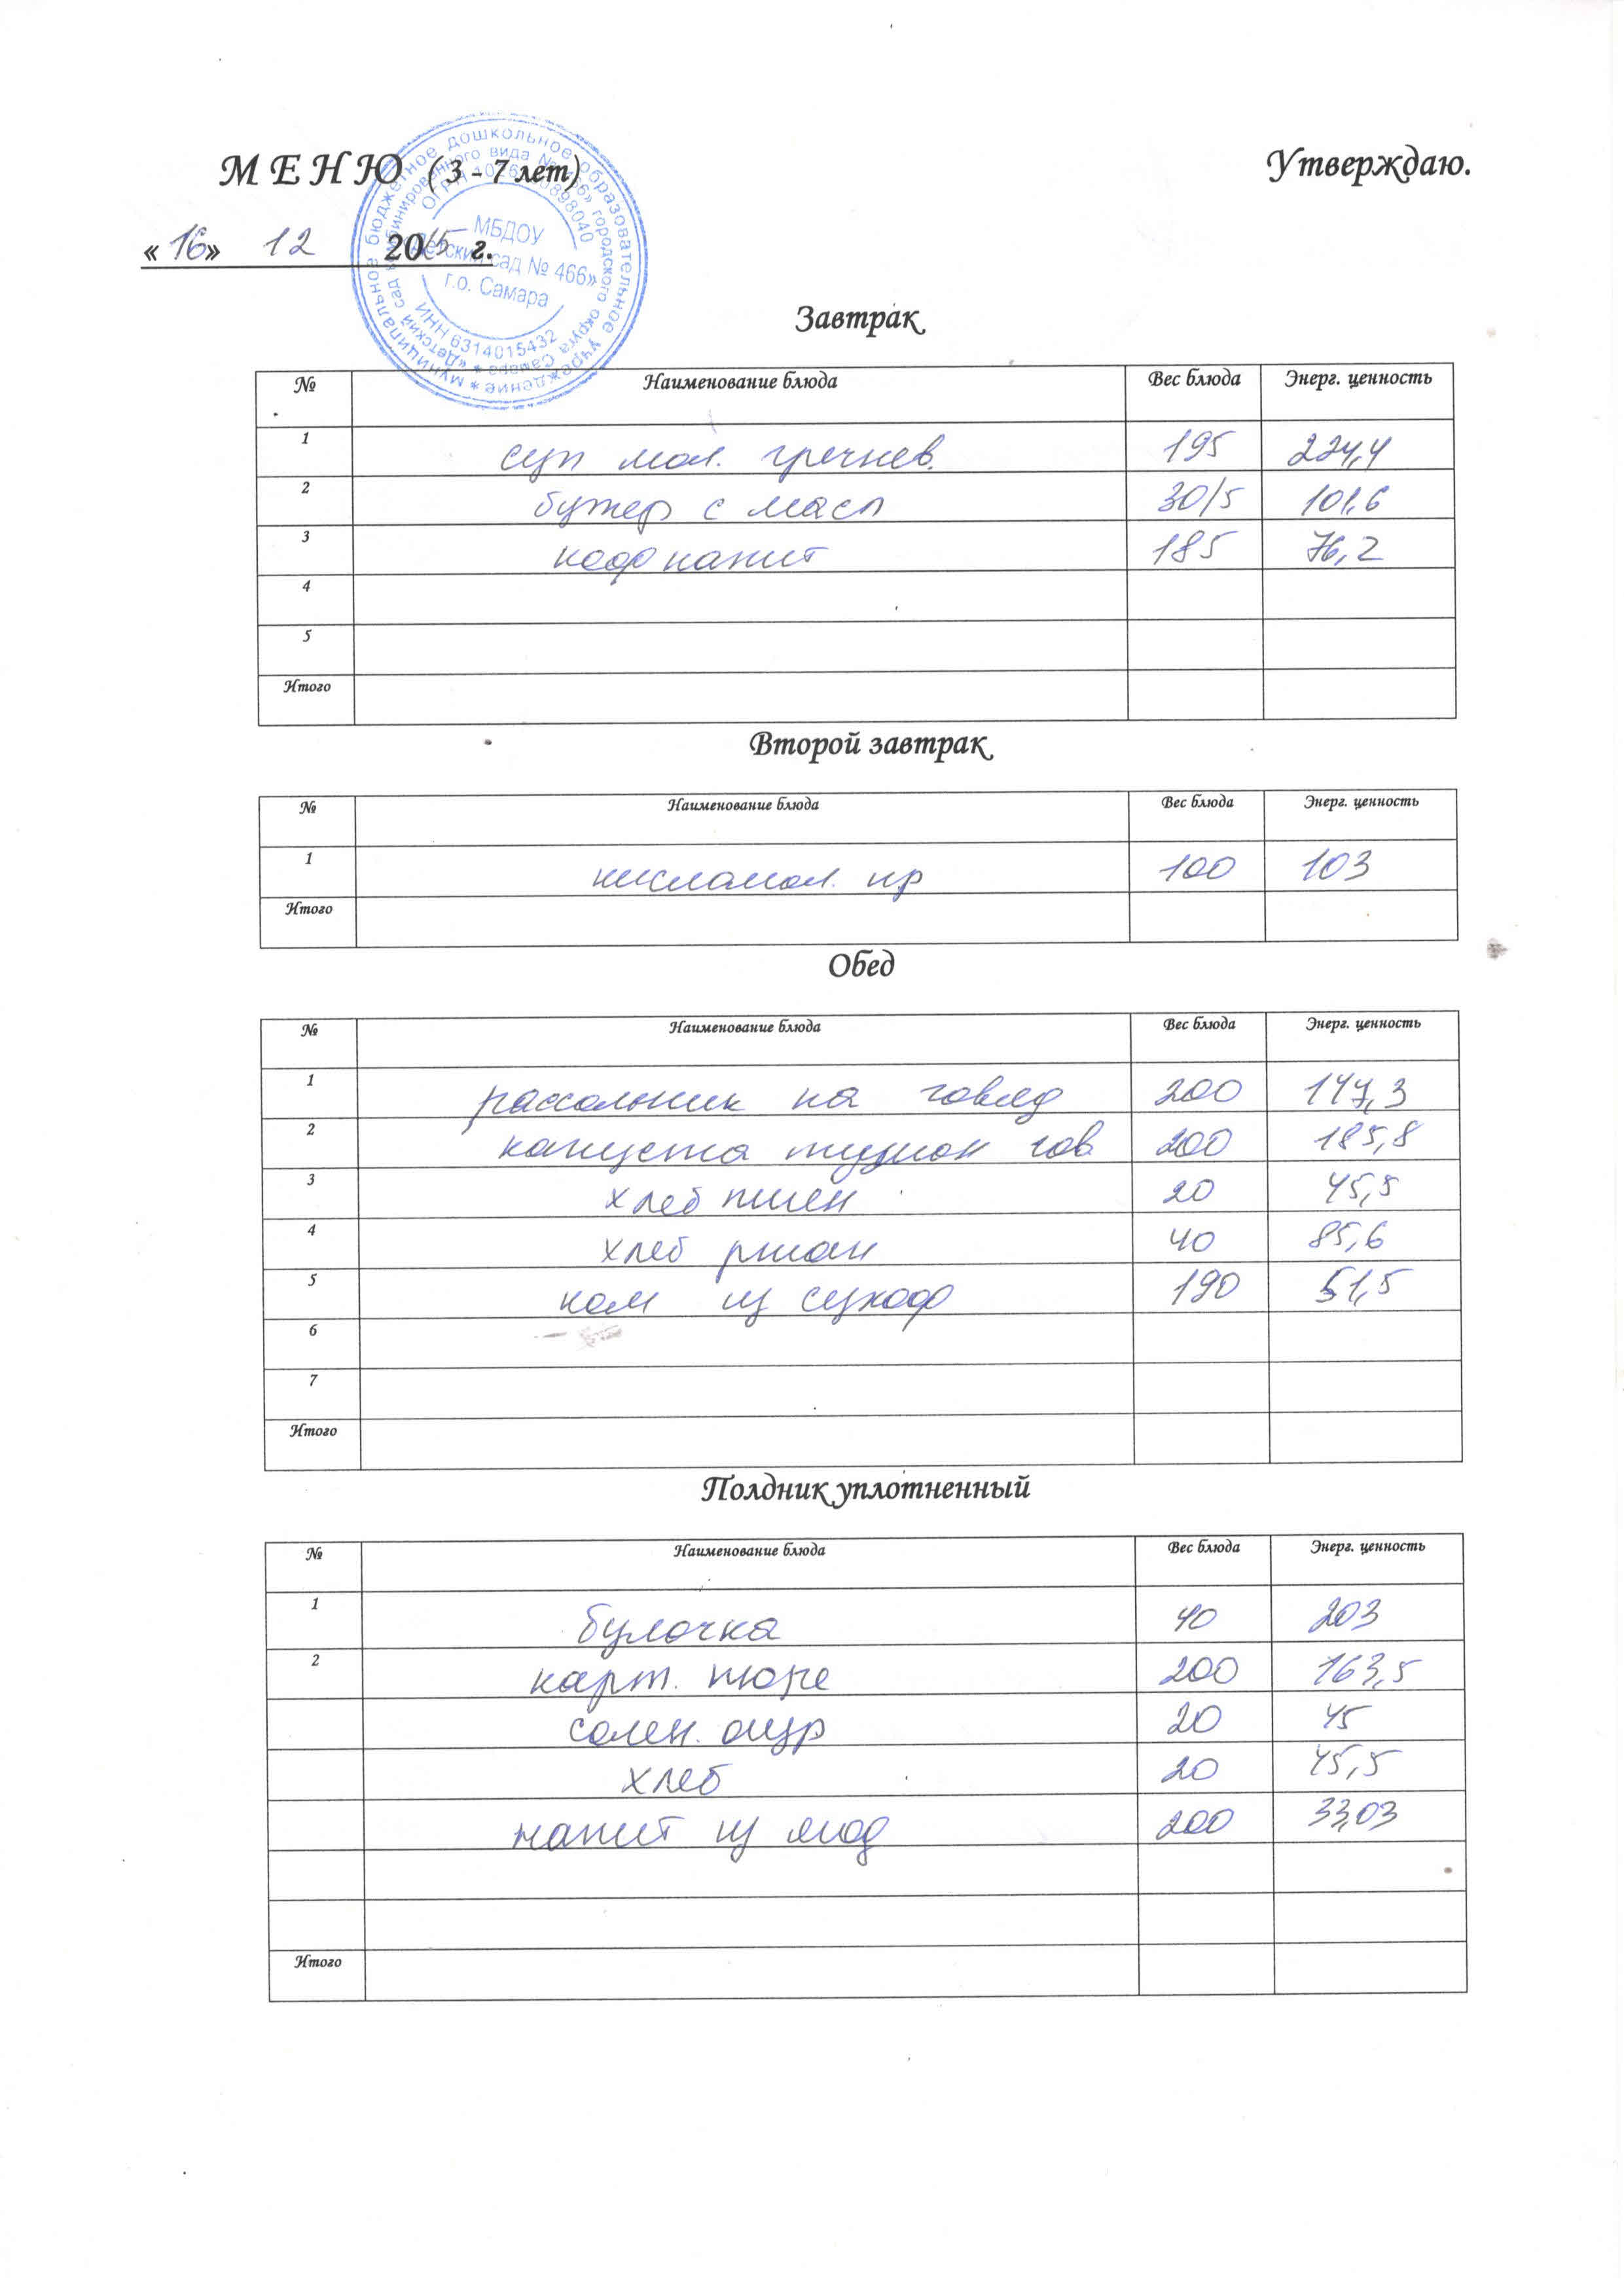 М Е Н Ю (3 - 7 лет) Утверждаю.
«16» 12 2015 г.
муниципальное бюджетное дошкольное образовательное учреждение
«Детский сад комбинированного вида № 466» городского округа Самара
МБДОУ
«Детский сад № 466»
г.о. Самара
ИНН 6314015432
Завтрак
№ Наименование блюда Вес блюда Энерг. ценность
1 суп мол. гречнев. 195 224,4
2 бутер с масл 30/5 101,6
3 коф напит 185 76,2
4
5
Итого
Второй завтрак
№ Наименование блюда Вес блюда Энерг. ценность
1 кисломол. пр 100 103
Итого
Обед
№ Наименование блюда Вес блюда Энерг. ценность
1 рассольник на говяд 200 147,3
2 капуста тушон гов 200 185,8
3 хлеб пшен 20 45,5
4 хлеб ржан 40 85,6
5 ком из сухоф 190 51,5
6
7
Итого
Полдник уплотненный
№ Наименование блюда Вес блюда Энерг. ценность
1 булочка 40 203
2 карт. пюре 200 163,5
солен. огур 20 45
хлеб 20 45,5
напит из ягод 200 33,03
Итого